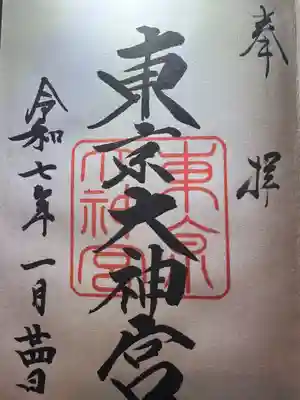 奉拝
東京大神宮
東京大神宮
令和七年一月廿四日